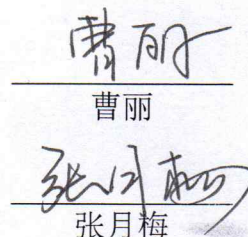 曹丽
曹丽
张月梅
张月梅